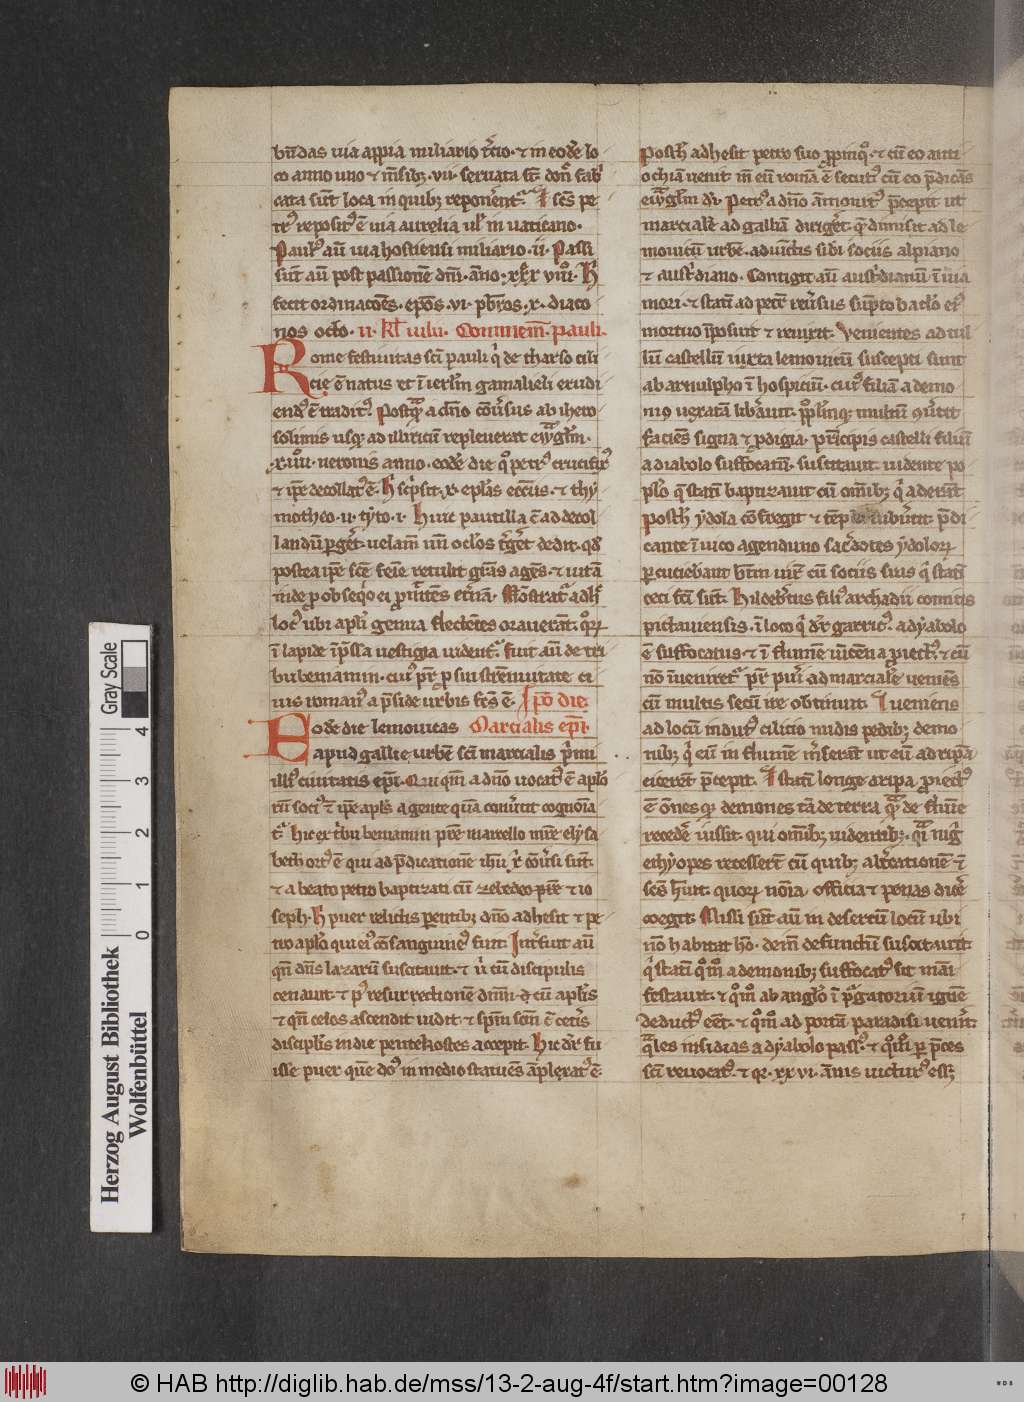 bu̅das uia appia miliario t̕cio · ⁊ in eode̅ lo
co anno uno ⁊ m̅sib; · vii · seruata st̅ don̅ fab̕
cata su̅t loca in quib; repone̕nt᷑ · S scs̅ pe
tr᷒ reposit᷒ e̅ uia aurelia ul̕ in uaticano ·
Paul᷒ au̅ uia hostiensi miliario · ii · Passi
su̅t au̅ post passione̅ dn̅i · a̅no · xxx viii᷒ · h̕
fecit ordinacoe̅s · ep̅os · vi · p̅br̅os · x · diaco
nos octo · ii · kl̅ iulii · Co̅mem̅ · pauli ·
Rome festiuitas sci̅ pauli q̕ de tharso cili
cie e̅ natus et i̅ ierl̅m gamalieli erudi
end᷒ e̅ tradit᷒ Postqa̅ a dn̅o co̅u̕sus ab ihero
solimis usq; ad illiricu̅ repleuerat ewgl̅m ·
xiiii · neronis anno · eode̅ die q̊ petr᷒ crucifix᷒
⁊ ip̅e decollat᷒ e̅ · h̕ sc̕psit · x · epl̅as eccl̅iis · ⁊ thy
motheo · ii · tyto · i · huic pautilla c̅ ad decol
landu̅ p̲ge̕t · uelam̅ un̅ oclo̅s t̕ge̕t dedit · qd̅
postea ip̅e sce̅ fe̅ie retulit gra̅s age̅s · ⁊ uita̅
inde p̲ obseqo̕ ei p̲mitte̅s et̕na̅ · Monstrat᷑ adh̕
loc᷒ ubi apl̅i genua flecte̅tes orauera̅t · qoꝝ
i̅ lapide ip̅ssa uestigia uident᷑ · fuit au̅ de tri
bu beniamin · cui᷒ pr̅ p̲ sui stre̅nuitate ci
uis roman᷒ a p̅side urbis fc̅s e̅ · Ip̅o die ·
Eode̅ die lemouicas Marcialis epi̅ ·
apud gallie urbe̅ sci̅ marcialis p̕mi
illi᷒ ciuitatis epi̅ · Qui qm̅ a dn̅o uocat᷒ e̅ apl̅o
ru̅ soci᷒ ⁊ ip̅e apl̅s a gente qua̅ conu̕tit cogno̅ia
t᷑ hic ex t̕bu beniamin pr̅e marcello mr̅e elysa
beth ort᷒ e̅ qui ad p̅dicatione̅ ihu̅ x̕ co̅u̕si su̅t ·
⁊ a beato petro baptizati cu̅ zebedeo pr̅e ⁊ io
seph · h̕ puer relictis p̲entib; dn̅o adhesit ⁊ pe
tro aplo̅ qui ei᷒ co̅sanguine᷒ fuit · Int̕fuit au̅
qn̅ dn̅s lazaru̅ suscitauit · ⁊ u̕ cu̅ discipulis
cenauit · ⁊ p᷒ resurrectione̅ dn̅m · d cu̅ apl̅is
⁊ qn̅ celos ascendit uidit · ⁊ spm̅ scm̅ c̅ cet̕is
discipl̅is in die pentekostes accepit · hic dr̅ fu
isse puer que̅ do᷒ in medio statue̅s a̅plexat᷒ e̅
Posth̕ adhesit petro suo p̲pinqo̕ · ⁊ cu̅ eo anti
ochia̅ uenit in̅ eu̅ roma̅ e̅ secut᷒ cu̅ eo p̅dica̅s
ewgl̅m dr̅ · Petr᷒ a dn̅o a̅monit᷒ p̅cepit ut
marciale̅ ad gallia̅ dirige̕t · q̅ dimisit ad le
mouicu̅ urbe̅ · adiu̅ctis sibi sociis alpiano
⁊ aust̕diano · Contigit au̅ aust̕dianu̅ i̅ uia
mori · ⁊ stati̅ ad petr̅ reu̕sus su̅pto baclo̅ ei᷒
mortuo i̅posuit ⁊ reuixit · Venientes ad tul
lu̅ castellu̅ iuxta lemouicu̅ suscepti sunt
ab arnulpho i̅ hospiciu̅ · cui᷒ filia̅ a demo
nio uexata̅ lib̕auit · pp̅linq; multu̅ 9u̕tit
facie̅s signa ⁊ p̲digia · p̕ncipis castelli filiu̅
a diabolo suffocatu̅ · suscitauit uidente po
pl̅o q̅ stati̅ baptizauit cu̅ om̅ib; q̕ aderant
Posth̕ ydola co̅fregit ⁊ te̅pla subu̕tit · p̅di
cante i̅ uico agenduno sac̕dotes ydoloꝝ
p̲cuciebant bt̅m uir̅ cu̅ sociis suis q̕ stati̅
ceci fc̅i su̅t · hildeb̕tus fili᷒ archadii comitis
pictauiensis · i̅ loco q̕ dr̅ garric᷒ · a dyabolo
e̅ suffocatus · ⁊ i̅ flumie̅ uice̅na p̲iect᷒ · ⁊ cu̅
no̅ i̅ueniret᷑ pr̅ pui̕ ad marciale̅ uenie̅s
cu̅ multis secu̅ ire obtinuit · S ueniens
ad locu̅ indut᷒ cilicio nudis pedib; demo
nib; q̕ eu̅ in flumie̅ m̕serat ut eu̅ ad ripa̅
eicere̅t p̅cepit · S stati̅ longe a ripa p̲iect᷒
e̅ · o̅nes q; demones ta̅ de terra qa̅ de flumie̅
recede̕ iussit · qui om̅ib; uidentib; · qi̅ nig̕
ethyopes recesseru̅t cu̅ quib; alt̕catione̅ ⁊
sce̅s h̕uit · quoꝝ no̅ia officia ⁊ penas dice̕
coegit · Missi su̅t au̅ in desertu̅ locu̅ ubi
no̅ habitat ho̅ · dein̅ defunctu̅ suscitauit ·
q̕ stati̅ q̊m̊ a demonib; suffocat᷒ sit mani
festauit · ⁊ q̊m̊ ab anglo̅ i̅ p᷑gatoriu̅ igne̅
deduct᷒ eet̅ · ⁊ q̊m̊ ad porta̅ paradisi uenit̅ ·
qa̅les insidias a dyabolo pass᷒ · ⁊ q̊m̊ p̲ p̅ces
sci̅ reuocat᷒ · ⁊ qꝛ · xxvi · a̅nis uictur᷒ ess;
Gray Scale
0 1 2 3 4
Herzog August Bibliothek
Wolfenbüttel
© HAB http://diglib.hab.de/mss/13-2-aug-4f/start.htm?image=00128